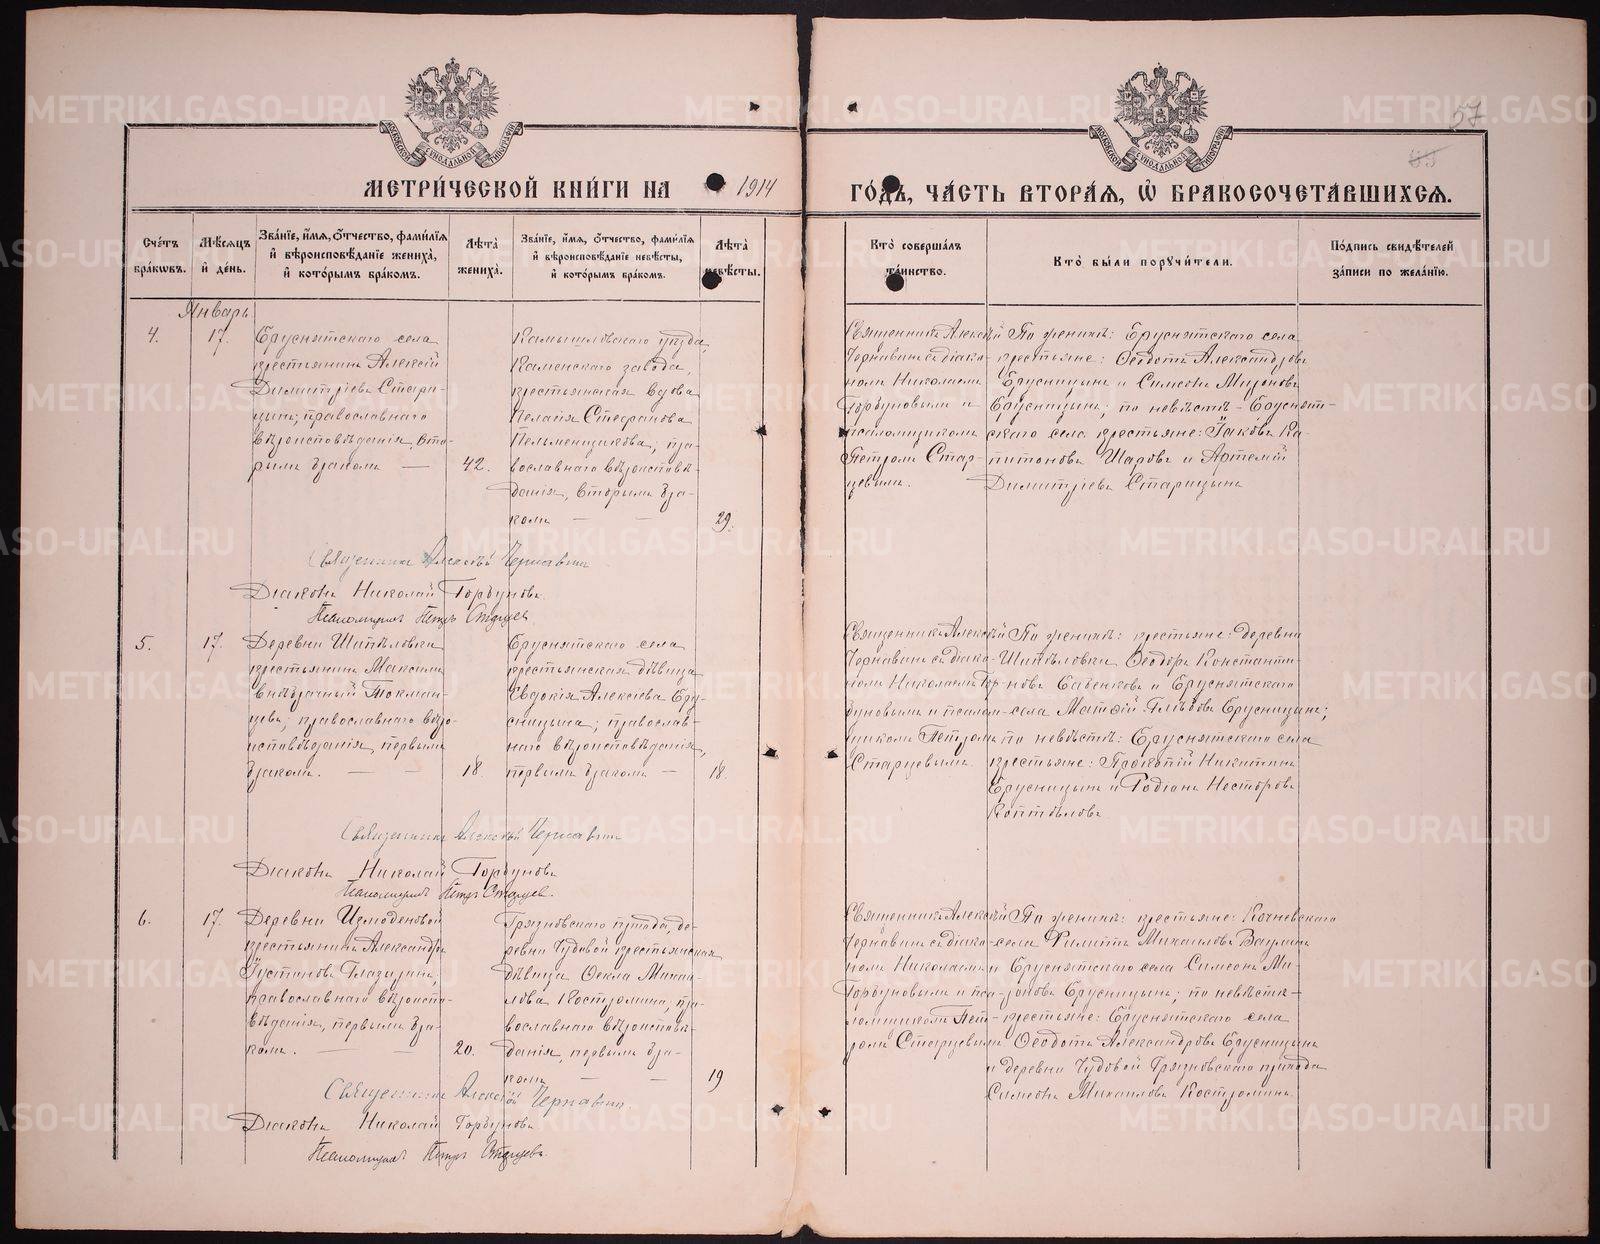 57
МЕТРИ́ЧЕСКОЙ КНИ́ГИ НА 1914 ГО́ДЪ, ЧА́СТЬ ВТОРА́Я, Ѽ БРАКОСОЧЕТА́ВШИХСЯ.
Сче́тъ бра́кѡвъ.
Мѣ́сяцъ и҆ де́нь.
Зва́нїе, и҆́мя, ѻ҆́тчество, фами́лїя и҆ вѣроисповѣ́данїе жениха̀, и҆ кото́рымъ бра́комъ.
Лѣ́та жениха̀.
Зва́нїе, и҆́мя, ѻ҆́тчество, фами́лїя и҆ вѣроисповѣ́данїе невѣ́сты, и҆ кото́рымъ бра́комъ.
Лѣ́та невѣ́сты.
Кто̀ соверша́лъ та́инство.
Кто̀ бы́ли поручи́тели.
По́дпись свидѣ́телей за́писи по жела́нїю.
Январь
4.
17.
Бруснятскаго села
крестьянинъ Алексій
Димитріевъ Стари-
цынъ, православнаго
вѣроисповѣданія, вто-
рымъ бракомъ —
42.
Камышловскаго уѣзда,
Каменскаго завода,
крестьянская вдова
Пелагія Стефанова
Пельменщикова, пра-
вославнаго вѣроисповѣ-
данія, вторымъ бра-
комъ — —
29.
Священникъ Алексѣй
Чернавинъ съ діако-
номъ Николаемъ
Горбуновымъ и
псаломщикомъ
Петромъ Стар-
цевымъ.
По женихѣ: Бруснятскаго села
крестьяне: Ѳеодотъ Александровъ
Брусницынъ и Симеонъ Мироновъ
Брусницынъ; по невѣстѣ - Бруснят-
скаго села крестьяне: Іаковъ Ка-
питоновъ Шаровъ и Артемій
Димитріевъ Старицынъ
Священникъ Алексѣй Чернавинъ
Діаконъ Николай Горбуновъ.
Псаломщикъ Петръ Старцевъ
5.
17.
Деревни Шипѣловки
крестьянинъ Максимъ
внѣбрачный Токман-
цевъ; православнаго вѣро-
исповѣданія, первымъ
бракомъ. — —
18.
Бруснятскаго села
крестьянская дѣвица
Евдокія Алексѣева Бру-
сницына; православ-
наго вѣроисповѣданія,
первымъ бракомъ —
18.
Священникъ Алексѣй
Чернавинъ съ діако-
номъ Николаемъ Гор-
буновымъ и псалом-
щикомъ Петромъ
Старцевымъ.
По женихѣ: крестьяне: деревни
Шипѣловки Ѳеодоръ Константи-
новъ Бабенковъ и Бруснятскаго
села Матѳій Глѣбовъ Брусницынъ;
по невѣстѣ: Бруснятскаго села
крестьяне: Прокопій Никитинъ
Брусницынъ и Родіонъ Несторовъ
Коптѣловъ.
Священникъ Алексѣй Чернавинъ
Діаконъ Николай Горбуновъ
Псаломщикъ Петръ Старцевъ.
6.
17.
Деревни Измоденовой
крестьянинъ Александръ
Іустиновъ Глазыринъ,
православнаго вѣроиспо-
вѣданія, первымъ бра-
комъ. — —
20.
Грязновскаго прихода, де-
ревни Чудовой крестьянская
дѣвица Ѳекла Михаи-
лова Костромина, пра-
вославнаго вѣроисповѣ-
данія, первымъ бра-
комъ — —
19
Священникъ Алексѣй
Чернавинъ съ діако-
номъ Николаемъ
Горбуновымъ и пса-
ломщикомъ Пет-
ромъ Старцевымъ
По женихѣ: крестьяне: Кочневскаго
села Филиппъ Михаиловъ Ваулинъ
и Бруснятскаго села Симеонъ Ми-
роновъ Брусницынъ; по невѣстѣ —
крестьяне: Бруснятскаго села
Ѳеодотъ Александровъ Брусницынъ
и деревни Чудовой Грязновскаго прихода
Симеонъ Михаиловъ Костроминъ.
Священникъ Алексѣй Чернавинъ
Діаконъ Николай Горбуновъ
Псаломщикъ Петръ Старцевъ.
METRIKI.GASO-URAL.RU